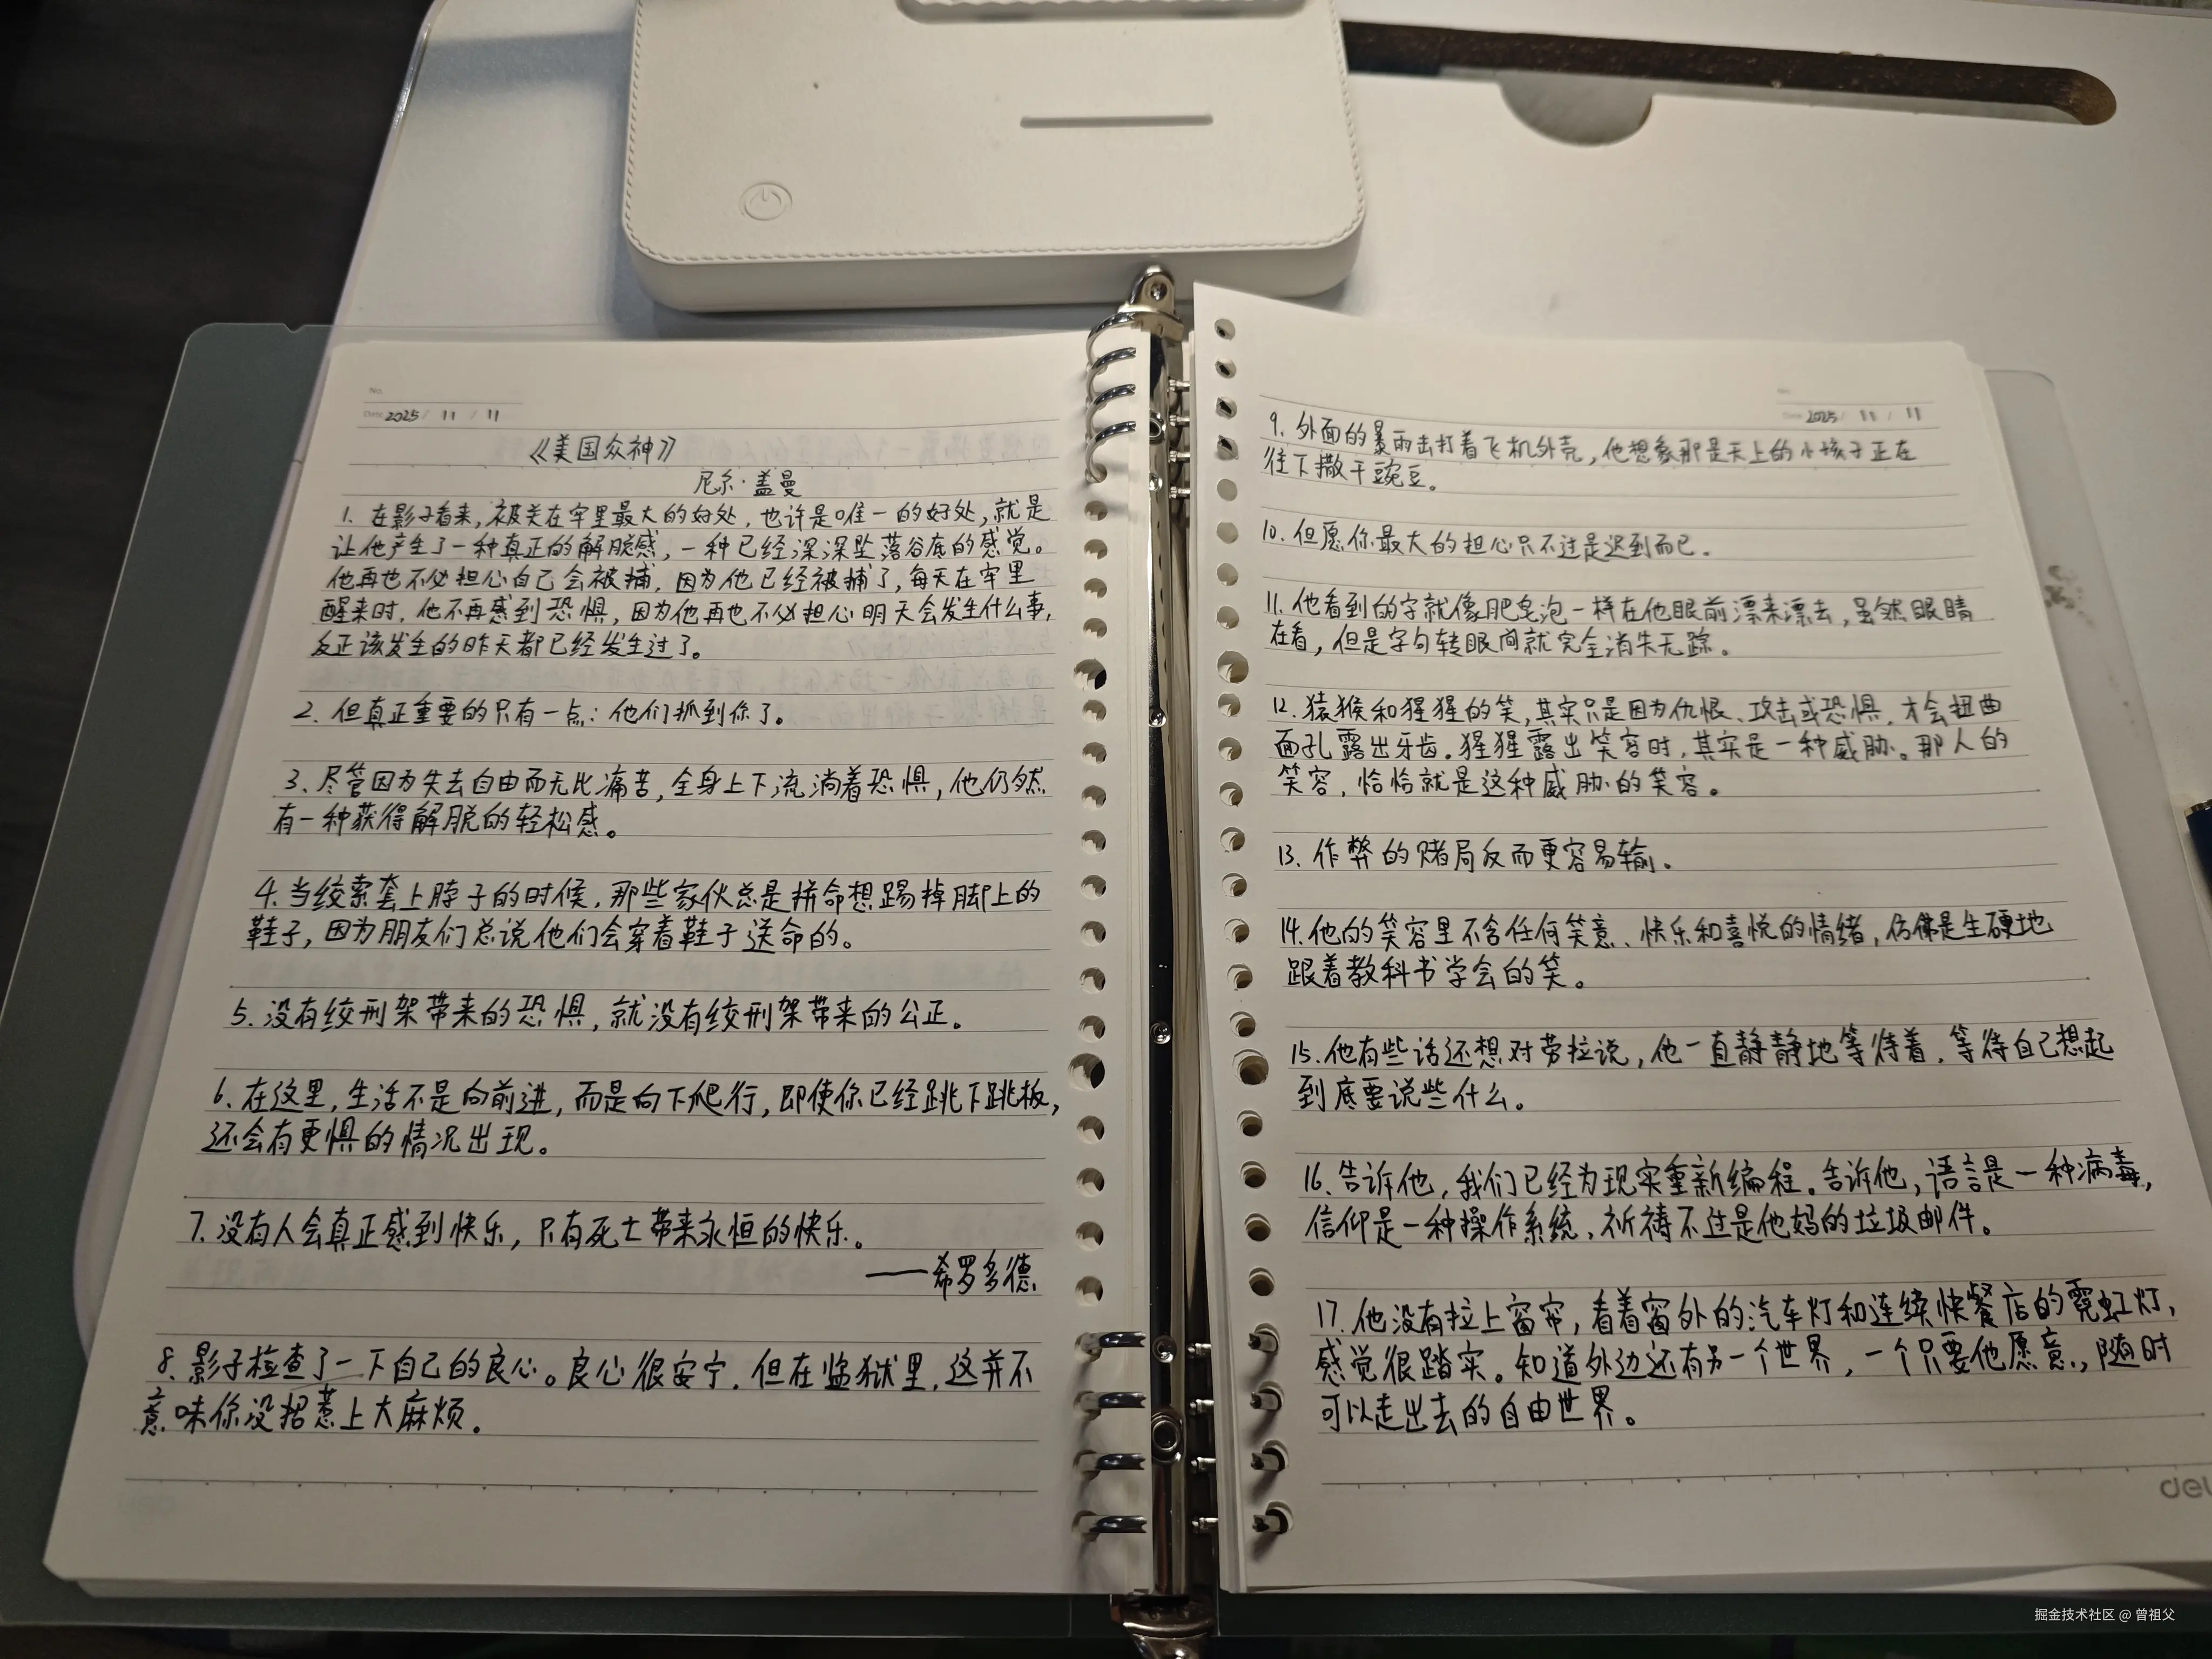 No.
Date 2025 / 11 / 11
《美国众神》
尼尔·盖曼
1. 在影子看来,被关在牢里最大的好处,也许是唯一的好处,就是
让他产生了一种真正的解脱感,一种已经深深坠落谷底的感觉。
他再也不必担心自己会被捕,因为他已经被捕了,每天在牢里
醒来时,他不再感到恐惧,因为他再也不必担心明天会发生什么事,
反正该发生的昨天都已经发生过了。
2. 但真正重要的只有一点:他们抓到你了。
3、尽管因为失去自由而无比痛苦,全身上下流淌着恐惧,他仍然
有一种获得解脱的轻松感。
4. 当绞索套上脖子的时候,那些家伙总是拼命想踢掉脚上的
鞋子,因为朋友们总说他们会穿着鞋子送命的。
5. 没有绞刑架带来的恐惧,就没有绞刑架带来的公正。
6、在这里,生活不是向前进,而是向下爬行,即使你已经跳下跳板,
还会有更惧的情况出现。
7. 没有人会真正感到快乐,只有死亡带来永恒的快乐。
——希罗多德
8. 影子检查了一下自己的良心。良心很安宁,但在监狱里,这并不
意味你没招惹上大麻烦。
Date 2025 / 11 / 11
9. 外面的暴雨击打着飞机外壳,他想象那是天上的小孩子正在
往下撒干豌豆。
10. 但愿你最大的担心只不过是迟到而已.
11. 他看到的字就像肥皂泡一样在他眼前漂来漂去,虽然眼睛
在看,但是字句转眼间就完全消失无踪.
12. 猿猴和猩猩的笑,其实只是因为仇恨、攻击或恐惧,才会扭曲
面孔露出牙齿.猩猩露出笑容时,其实是一种威胁.那人的
笑容,恰恰就是这种威胁的笑容。
13. 作弊的赌局反而更容易输.
14. 他的笑容里不含任何笑意、快乐和喜悦的情绪,仿佛是生硬地
跟着教科书学会的笑。
15. 他有些话还想对劳拉说,他一直静静地等待着,等待自己想起
到底要说些什么。
16、告诉他,我们已经为现实重新编程.告诉他,语言是一种病毒,
信仰是一种操作系统,祈祷不过是他妈的垃圾邮件。
17. 他没有拉上窗帘,看着窗外的汽车灯和连续快餐店的霓虹灯,
感觉很踏实。知道外边还有另一个世界,一个只要他愿意,随时
可以走出去的自由世界。
掘金技术社区 @ 曾祖父